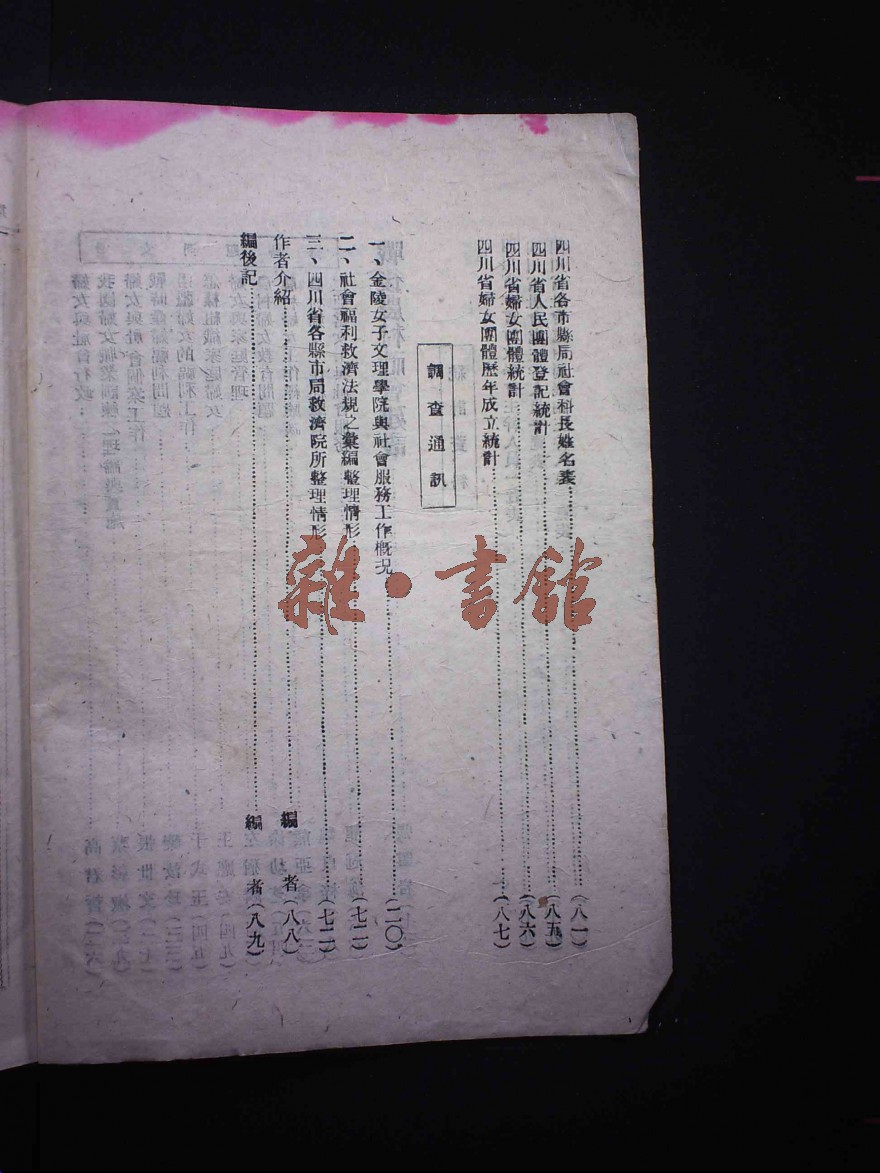 四川省各市縣局社會科長姓名表……（八一）
四川省人民團體登記統計……（八五）
四川省婦女團體統計……（八六）
四川省婦女團體歷年成立統計……（八七）
調查通訊
一、金陵女子文理學院與社會服務工作概況……（二〇）
二、社會福利救濟法規之彙編整理情形……（七二）
三、四川省各縣市局救濟院所整理情形……（七二）
作者介紹……編者（八八）
編後記……編者（八九）
雜·書館